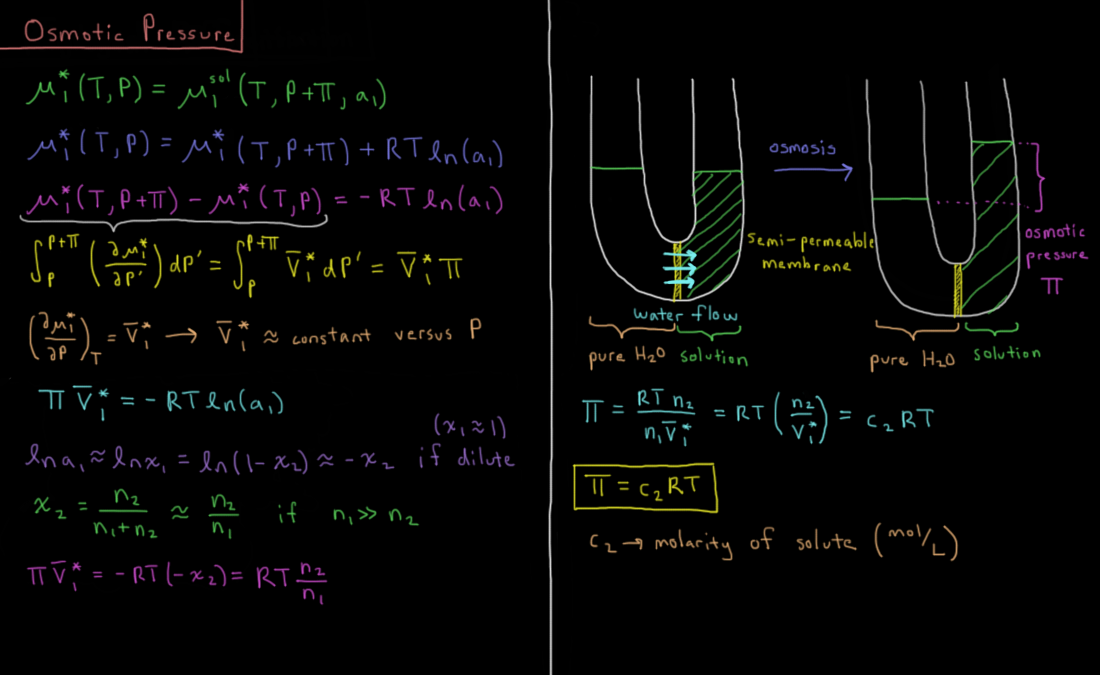 Osmotic Pressure
μ₁*(T,P) = μ₁ˢᵒˡ(T, P+Π, a₁)
μ₁*(T,P) = μ₁*(T,P+Π) + RT ln(a₁)
μ₁*(T,P+Π) − μ₁*(T,P) = −RT ln(a₁)
∫_P^{P+Π} (∂μ₁*/∂P′) dP′ = ∫_P^{P+Π} V̄₁* dP′ = V̄₁* Π
(∂μ₁*/∂P)_T = V̄₁* → V̄₁* ≈ constant versus P
Π V̄₁* = −RT ln(a₁)
(x₁ ≈ 1)
ln a₁ ≈ ln x₁ = ln(1−x₂) ≈ −x₂ if dilute
x₂ = n₂/(n₁+n₂) ≈ n₂/n₁ if n₁ >> n₂
Π V̄₁* = −RT(−x₂) = RT n₂/n₁
osmosis
semi-permeable
membrane
water flow
pure H₂O
solution
osmotic
pressure
Π
pure H₂O
solution
Π = RT n₂/(n₁V̄₁*) = RT (n₂/V₁*) = c₂RT
Π = c₂RT
c₂ → molarity of solute (mol/L)